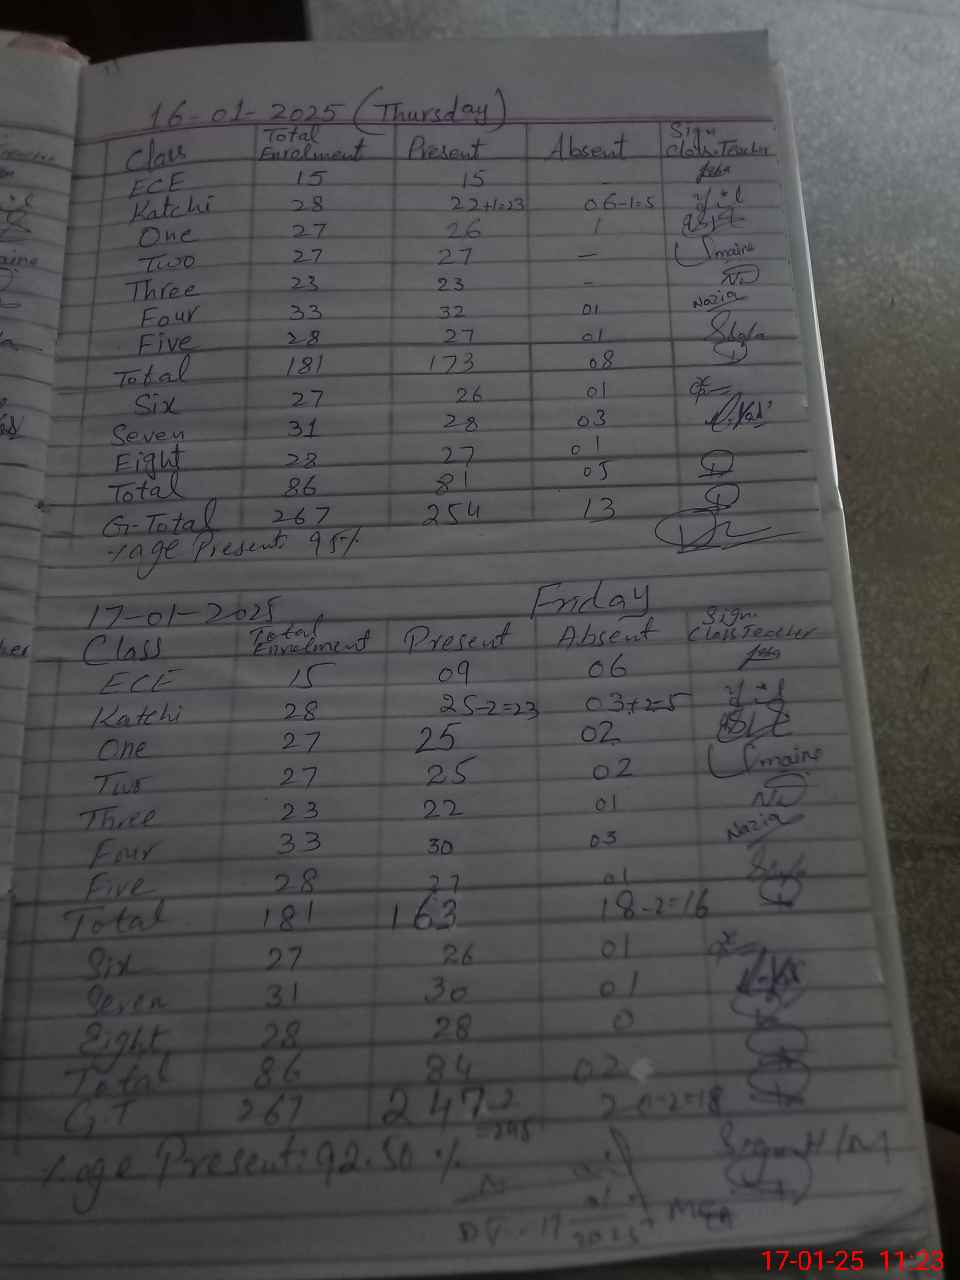 16-01-2025 (Thursday)
Class Total Enrolment Present Absent Sign Class Teacher
ECE 15 15 -
Katchi 28 22+1=23 06-1=5
One 27 26 1
Two 27 27 —
Three 23 23 -
Four 33 32 01 Nazia
Five 28 27 01
Total 181 173 08
Six 27 26 01
Seven 31 28 03
Eight 28 27 01
Total 86 81 05
G-Total 267 254 13
%age Present: 95%
17-01-2025 Friday
Class Total Enrolment Present Absent Sign Class Teacher
ECE 15 09 06
Katchi 28 25-2=23 03+2=5
One 27 25 02
Two 27 25 02
Three 23 22 01
Four 33 30 03 Nazia
Five 28 27 01
Total 181 163 18-2=16
Six 27 26 01
Seven 31 30 01
Eight 28 28 0
Total 86 84 02
G.T 267 247-2 20-2=18
=245
%age Present: 92.50 %
17-01-25 11:23